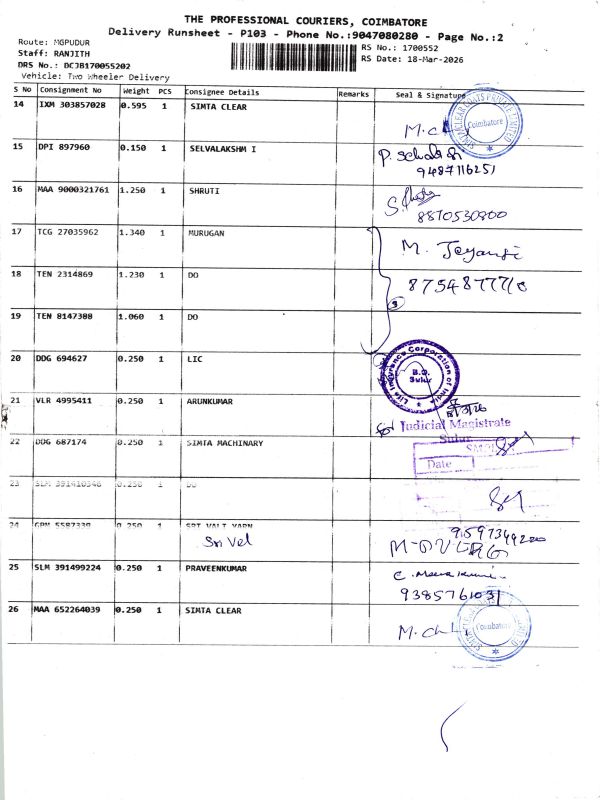 THE PROFESSIONAL COURIERS, COIMBATORE
Delivery Runsheet - P103 - Phone No.:9047080280 - Page No.:2
Route: MGPUDUR
Staff: RANJITH
DRS No.: DCJB170055202
Vehicle: Two Wheeler Delivery
RS No.: 1700552
RS Date: 18-Mar-2026
S No Consignment No Weight PCS Consignee Details Remarks Seal & Signature
14 IXM 303857028 0.595 1 SIMTA CLEAR
Coimbatore
15 DPI 897960 0.150 1 SELVALAKSHM I
9487116251
16 MAA 9000321761 1.250 1 SHRUTI
8870530900
17 TCG 27035962 1.340 1 MURUGAN
M. Jeyanthi
18 TEN 2314869 1.230 1 DO
19 TEN 8147388 1.060 1 DO
3
20 DDG 694627 0.250 1 LIC
Life Insurance Corporation of India
B.O.
Sulur
21 VLR 4995411 0.250 1 ARUNKUMAR
Judicial Magistrate
Sulur
22 DDG 687174 0.250 1 SIMTA MACHINERY
Date
23 SLM 391410346 0.250 1 DO
24 GPM 5587339 0.250 1 SRI VALI YARN
Sri Vel
25 SLM 391499224 0.250 1 PRAVEENKUMAR
9385761031
26 MAA 652264039 0.250 1 SIMTA CLEAR
Coimbatore